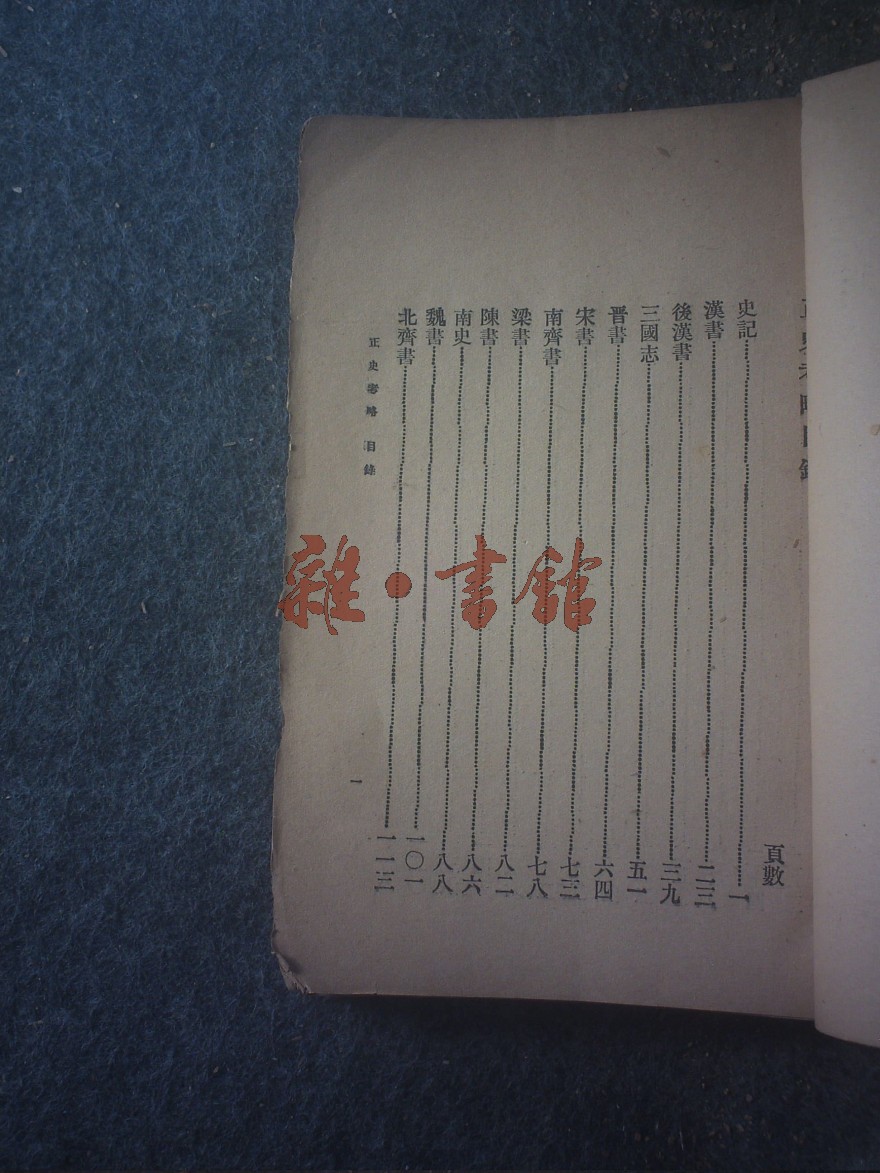 正史考略目錄
頁數
史記……一
漢書……二三
後漢書……三九
三國志……五一
晋書……六四
宋書……七三
南齊書……七八
梁書……八二
陳書……八六
南史……八八
魏書……一〇一
北齊書……一一三
正史考略 目錄
一
雜·書館